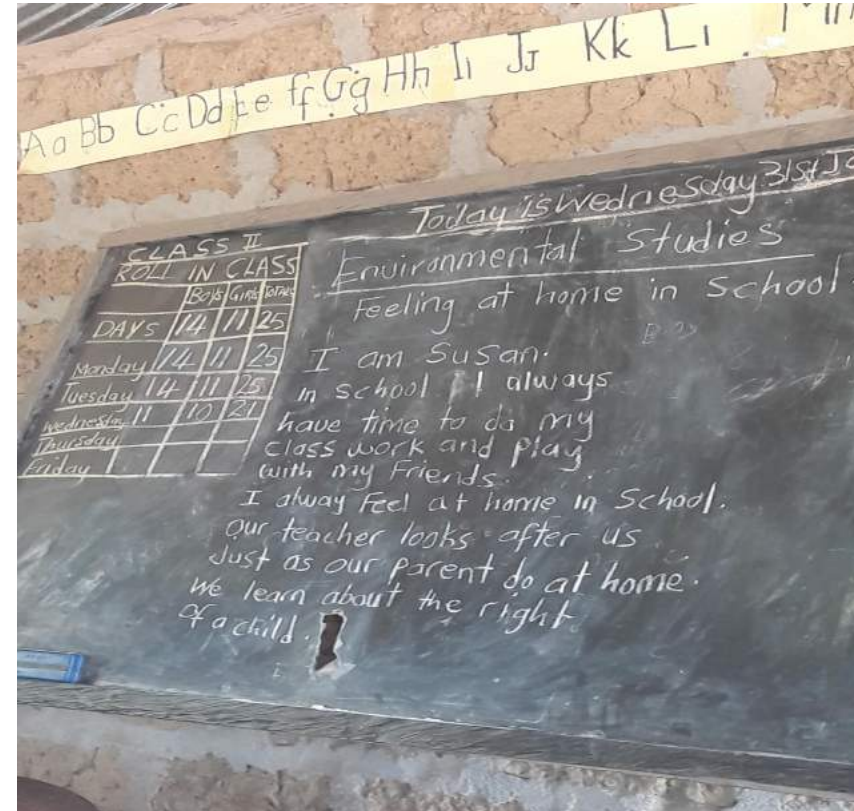 Aa Bb Cc Dd Ee Ff Gg Hh Ii Jj Kk Li
Today is Wednesday 31st
CLASS II
ROLL IN CLASS
BOYS GIRLS TOTAL
DAYS 14 11 25
Monday 14 11 25
Tuesday 14 11 25
Wednesday 11 10 21
Thursday
Friday
Environmental Studies
Feeling at home in School
I am Susan.
In school I always
have time to do my
class work and play
with my Friends.
I alway Feel at home in School.
Our teacher looks after us
Just as our parent do at home.
We learn about the right
of a child.